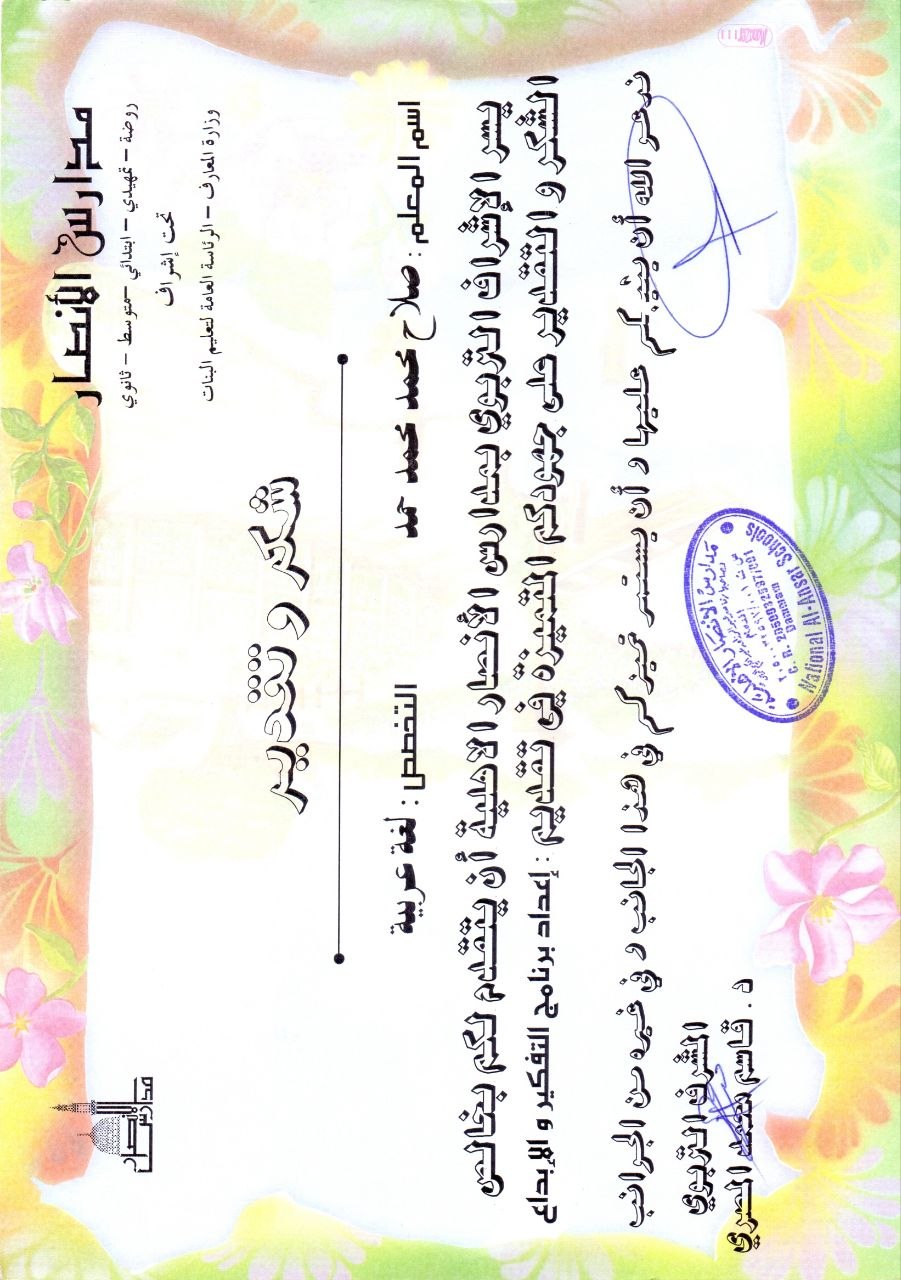 مدارس الأنصار
روضة - تمهيدي - ابتدائي - متوسط - ثانوي
تحت إشراف
وزارة المعارف - الرئاسة العامة لتعليم البنات
مدارس الأنصار
شكر و تقدير
اسم المعلم : صلاح محمد محمد حمد التخصص : لغة عربية
يسر الإشراف التربوي بمدارس الأنصار الاهلية أن يتقدم لكم بخالص
الشكر و التقدير على جهودكم المتميزة في تقديم : إعداد برنامج التفكير و الإبداع
ندعو الله أن يثيبكم عليها و أن يستمر تميزكم في هذا الجانب و في غيره من الجوانب
المشرف التربوي
د . قاسم محمد المصري
مدارس الأنصار الأهلية
C. R. 2050032597/001
Dammam
National Al-Ansar Schools